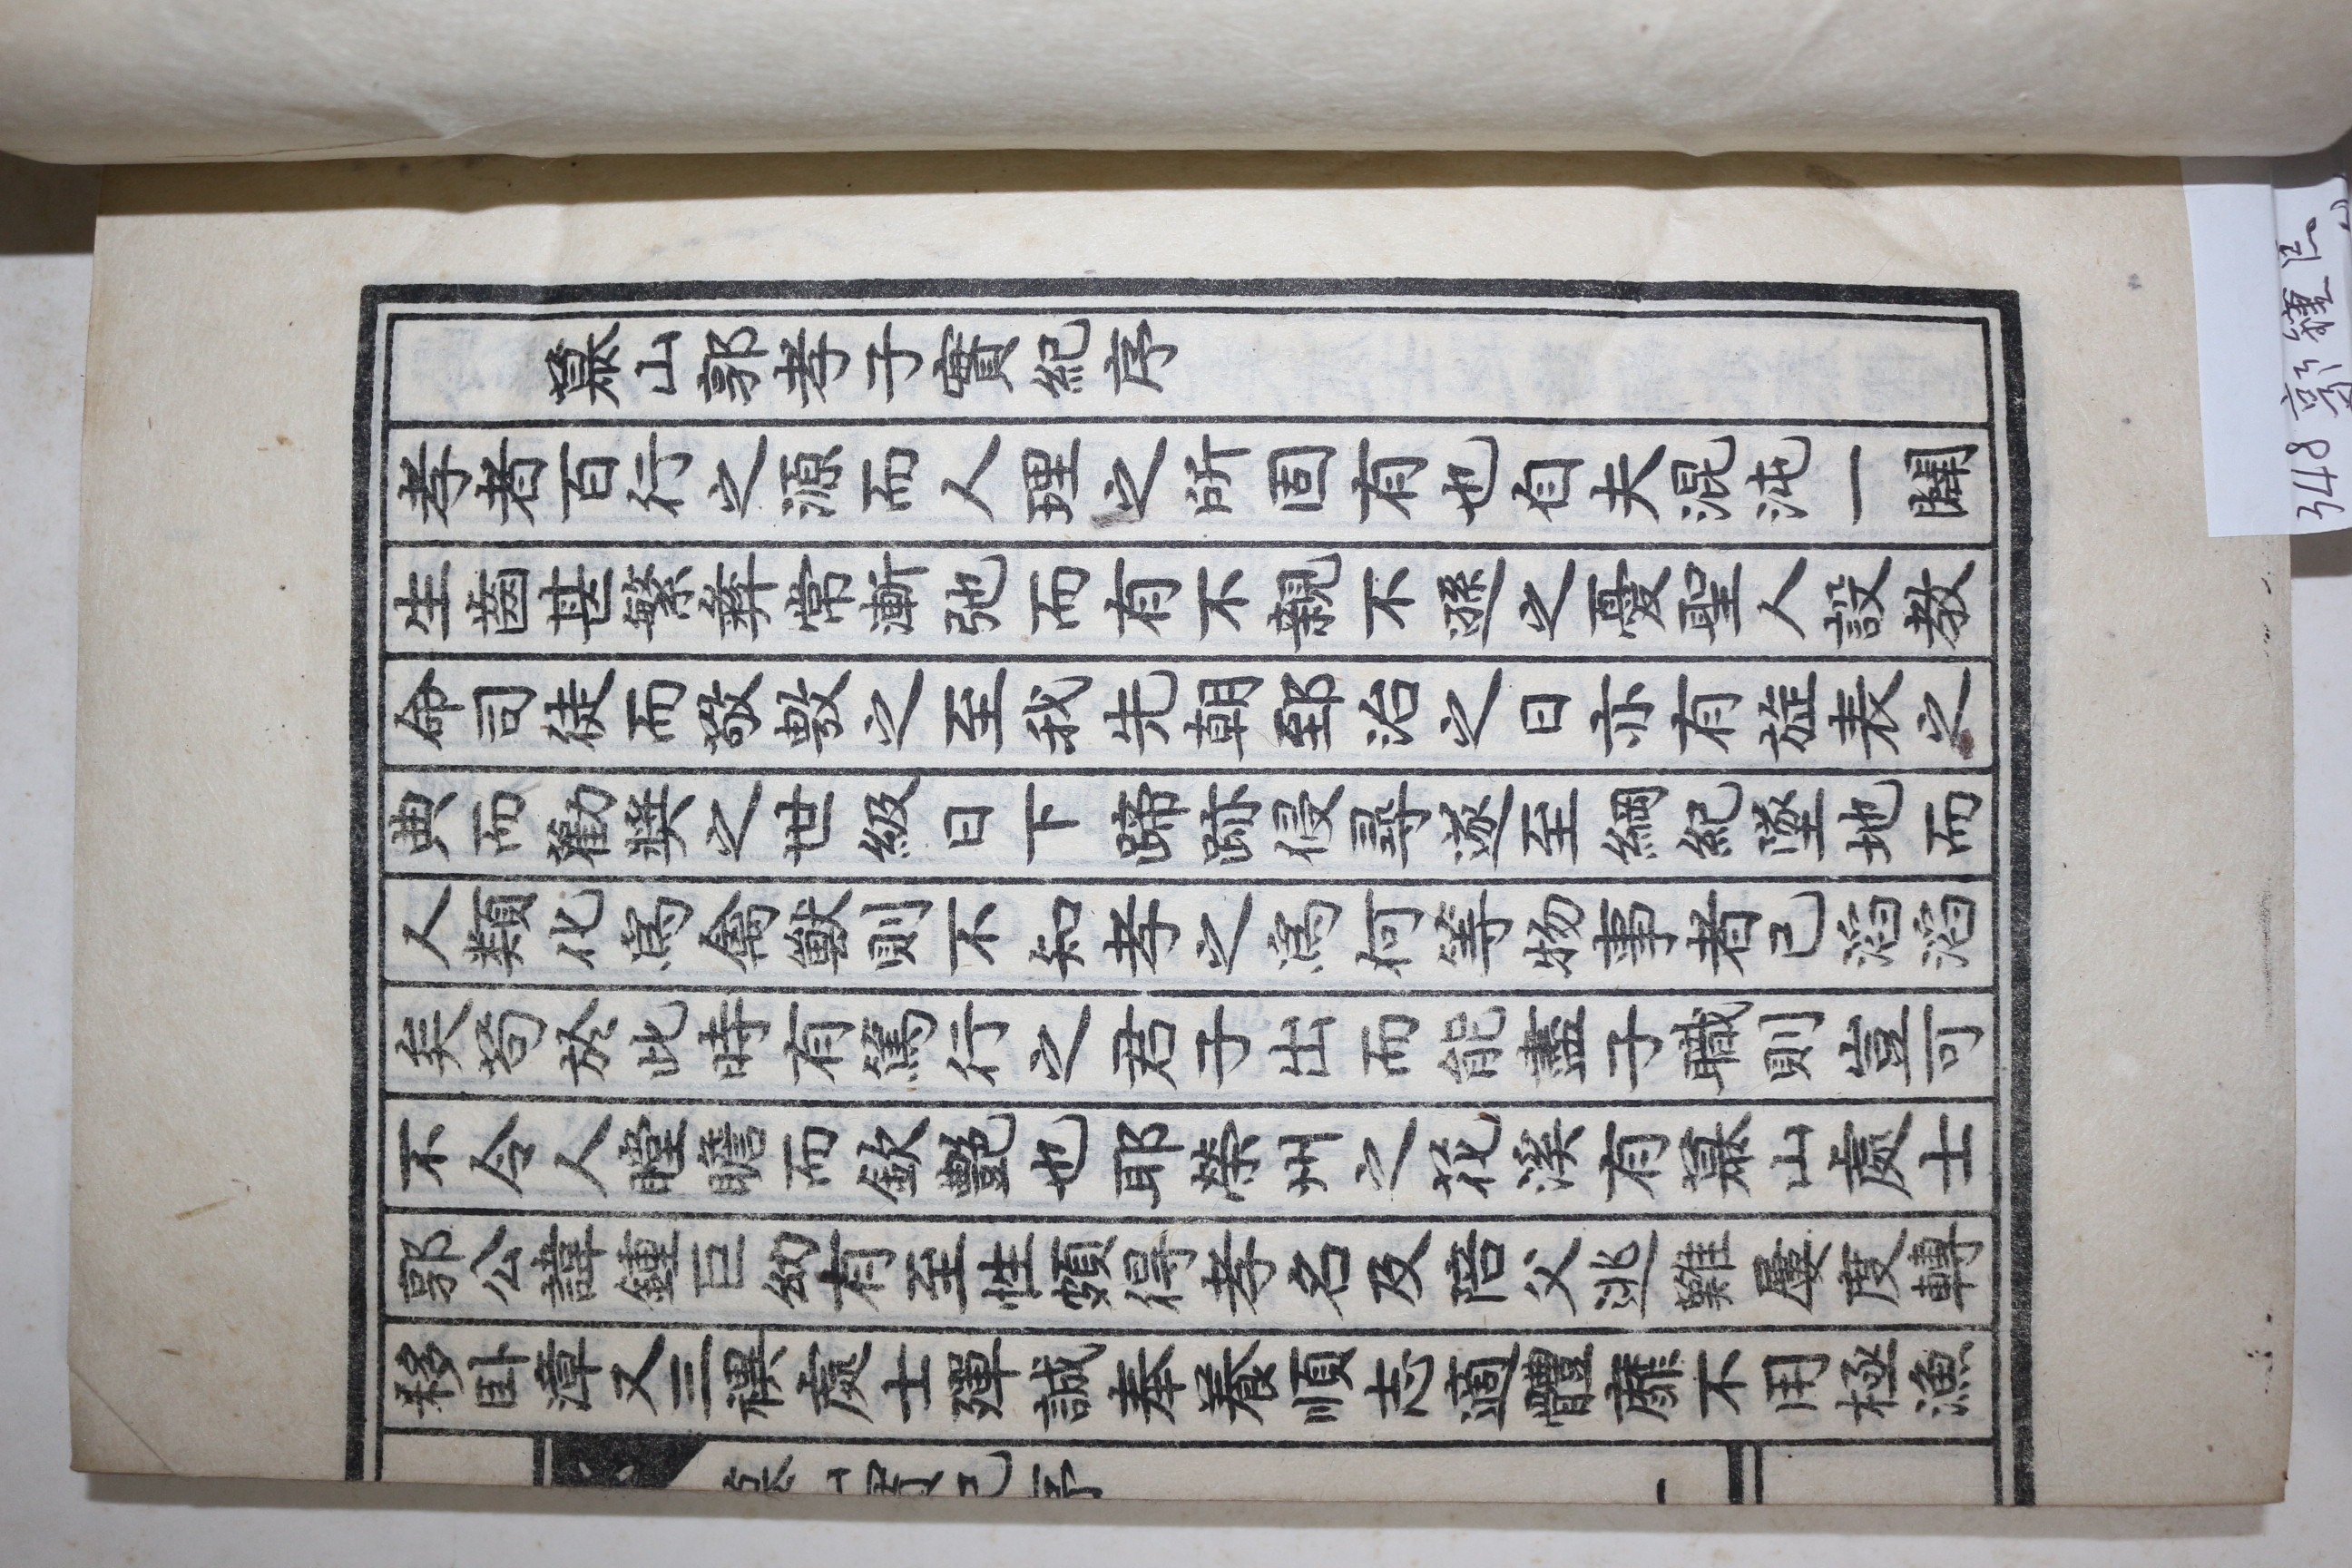 慕山郭孝子實紀序
孝者百行之源而人理之所固有也自夫混沌一闢
生齒甚繁彜常漸弛而有不親不遜之憂聖人設教
命司徒而敬敷之至我先朝郅治之日亦有旌表之
典而勸奬之世級日下蹄跡侵尋遂至綱紀墜地而
人類化爲禽獸則不知孝之爲何等物事者已滔滔
矣苟於此時有篤行之君子出而能盡子職則豈可
不令人瞠瞻而欽艶也耶榮州之花溪有慕山處士
郭公諱鍾巨幼有至性頗得孝名及陪父逃難屢度轉
移卧漳又三禩處士殫誠奉養順志適體靡不用極漁
慕山實紀序
一
348 郭鍾